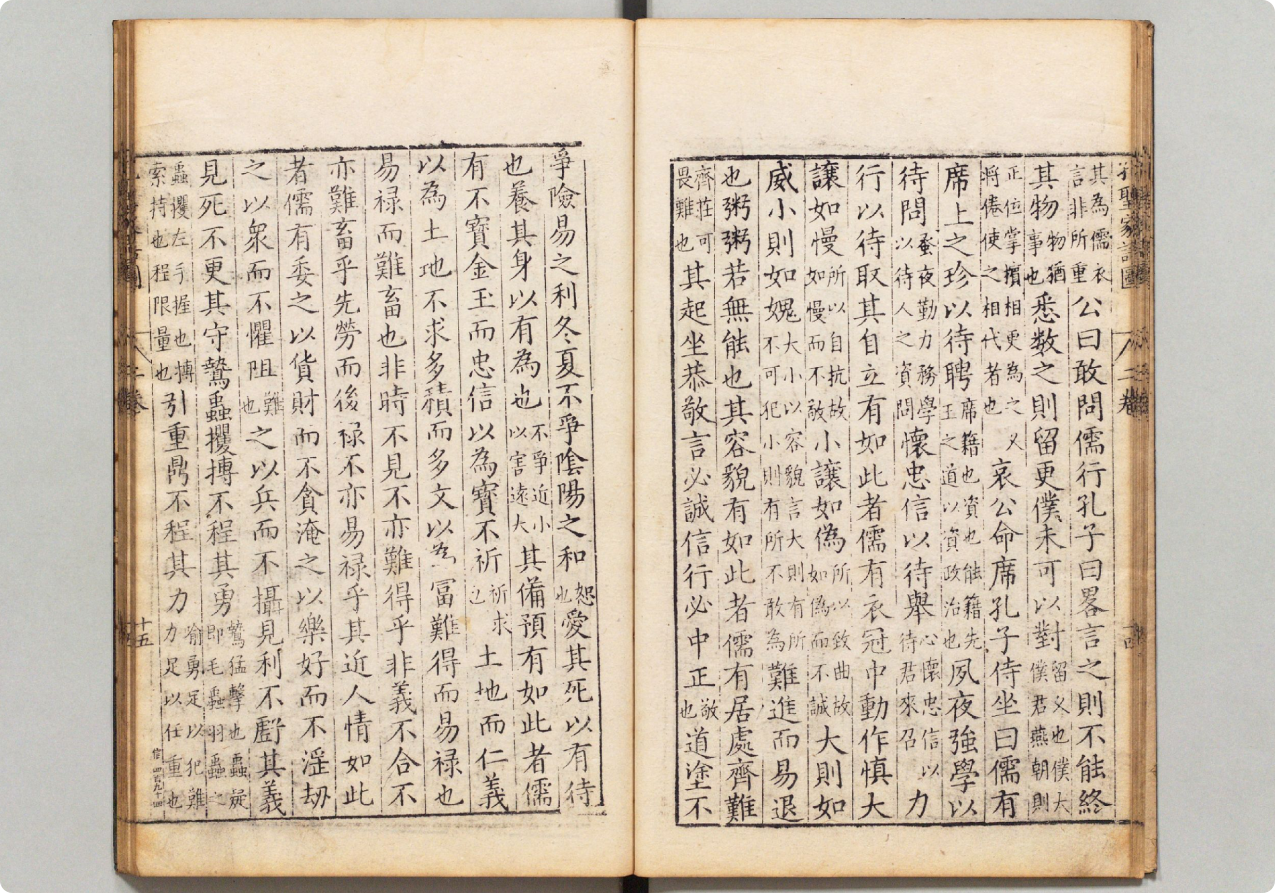 孔聖家語圖 二卷 十四
其為儒衣言非所重公曰敢問儒行孔子曰畧言之則不能終
其物物猶事也悉數之則留更僕未可以對留乂也僕大僕君燕朝則
正位掌擯相更為之乂將倦使之相代者也哀公命席孔子侍坐曰儒有
席上之珍以待聘席籍也資也能籍先玉之道以資政治也夙夜強學以
待問蚤夜勤力務學以待人之資問懷忠信以待舉心懷忠信以待君來召力
行以待取其自立有如此者儒有衣冠中動作慎大
讓如慢所以自抗故如慢而不敢小讓如偽所以致曲故如偽而不誠大則如
威小則如媿大小以容貌言大則有所不可犯小則有所不敢為難進而易退
也粥粥若無能也其容貌有如此者儒有居處齊難
齊莊可畏難也其起坐恭敬言必誠信行必中正敬也道塗不
爭險易之利冬夏不爭陰陽之和恕也愛其死以有待
也養其身以有為也不爭近小以害遠大其備預有如此者儒
有不寶金玉而忠信以為寶不祈祈求也土地而仁義
以為土地不求多積而多文以為冨難得而易祿也
易祿而難畜也非時不見不亦難得乎非義不合不
亦難畜乎先勞而後祿不亦易祿乎其近人情如此
者儒有委之以貨財而不貪淹之以樂好而不淫劫
之以衆而不懼阻難也之以兵而不攝見利不虧其義
見死不更其守鷙蟲攫搏不程其勇鷙猛擊也蟲疑即毛蟲羽蟲之
蟲攫左手握也搏索持也程限量也引重鼎不程其力喻勇足以犯難力足以任重也
十五